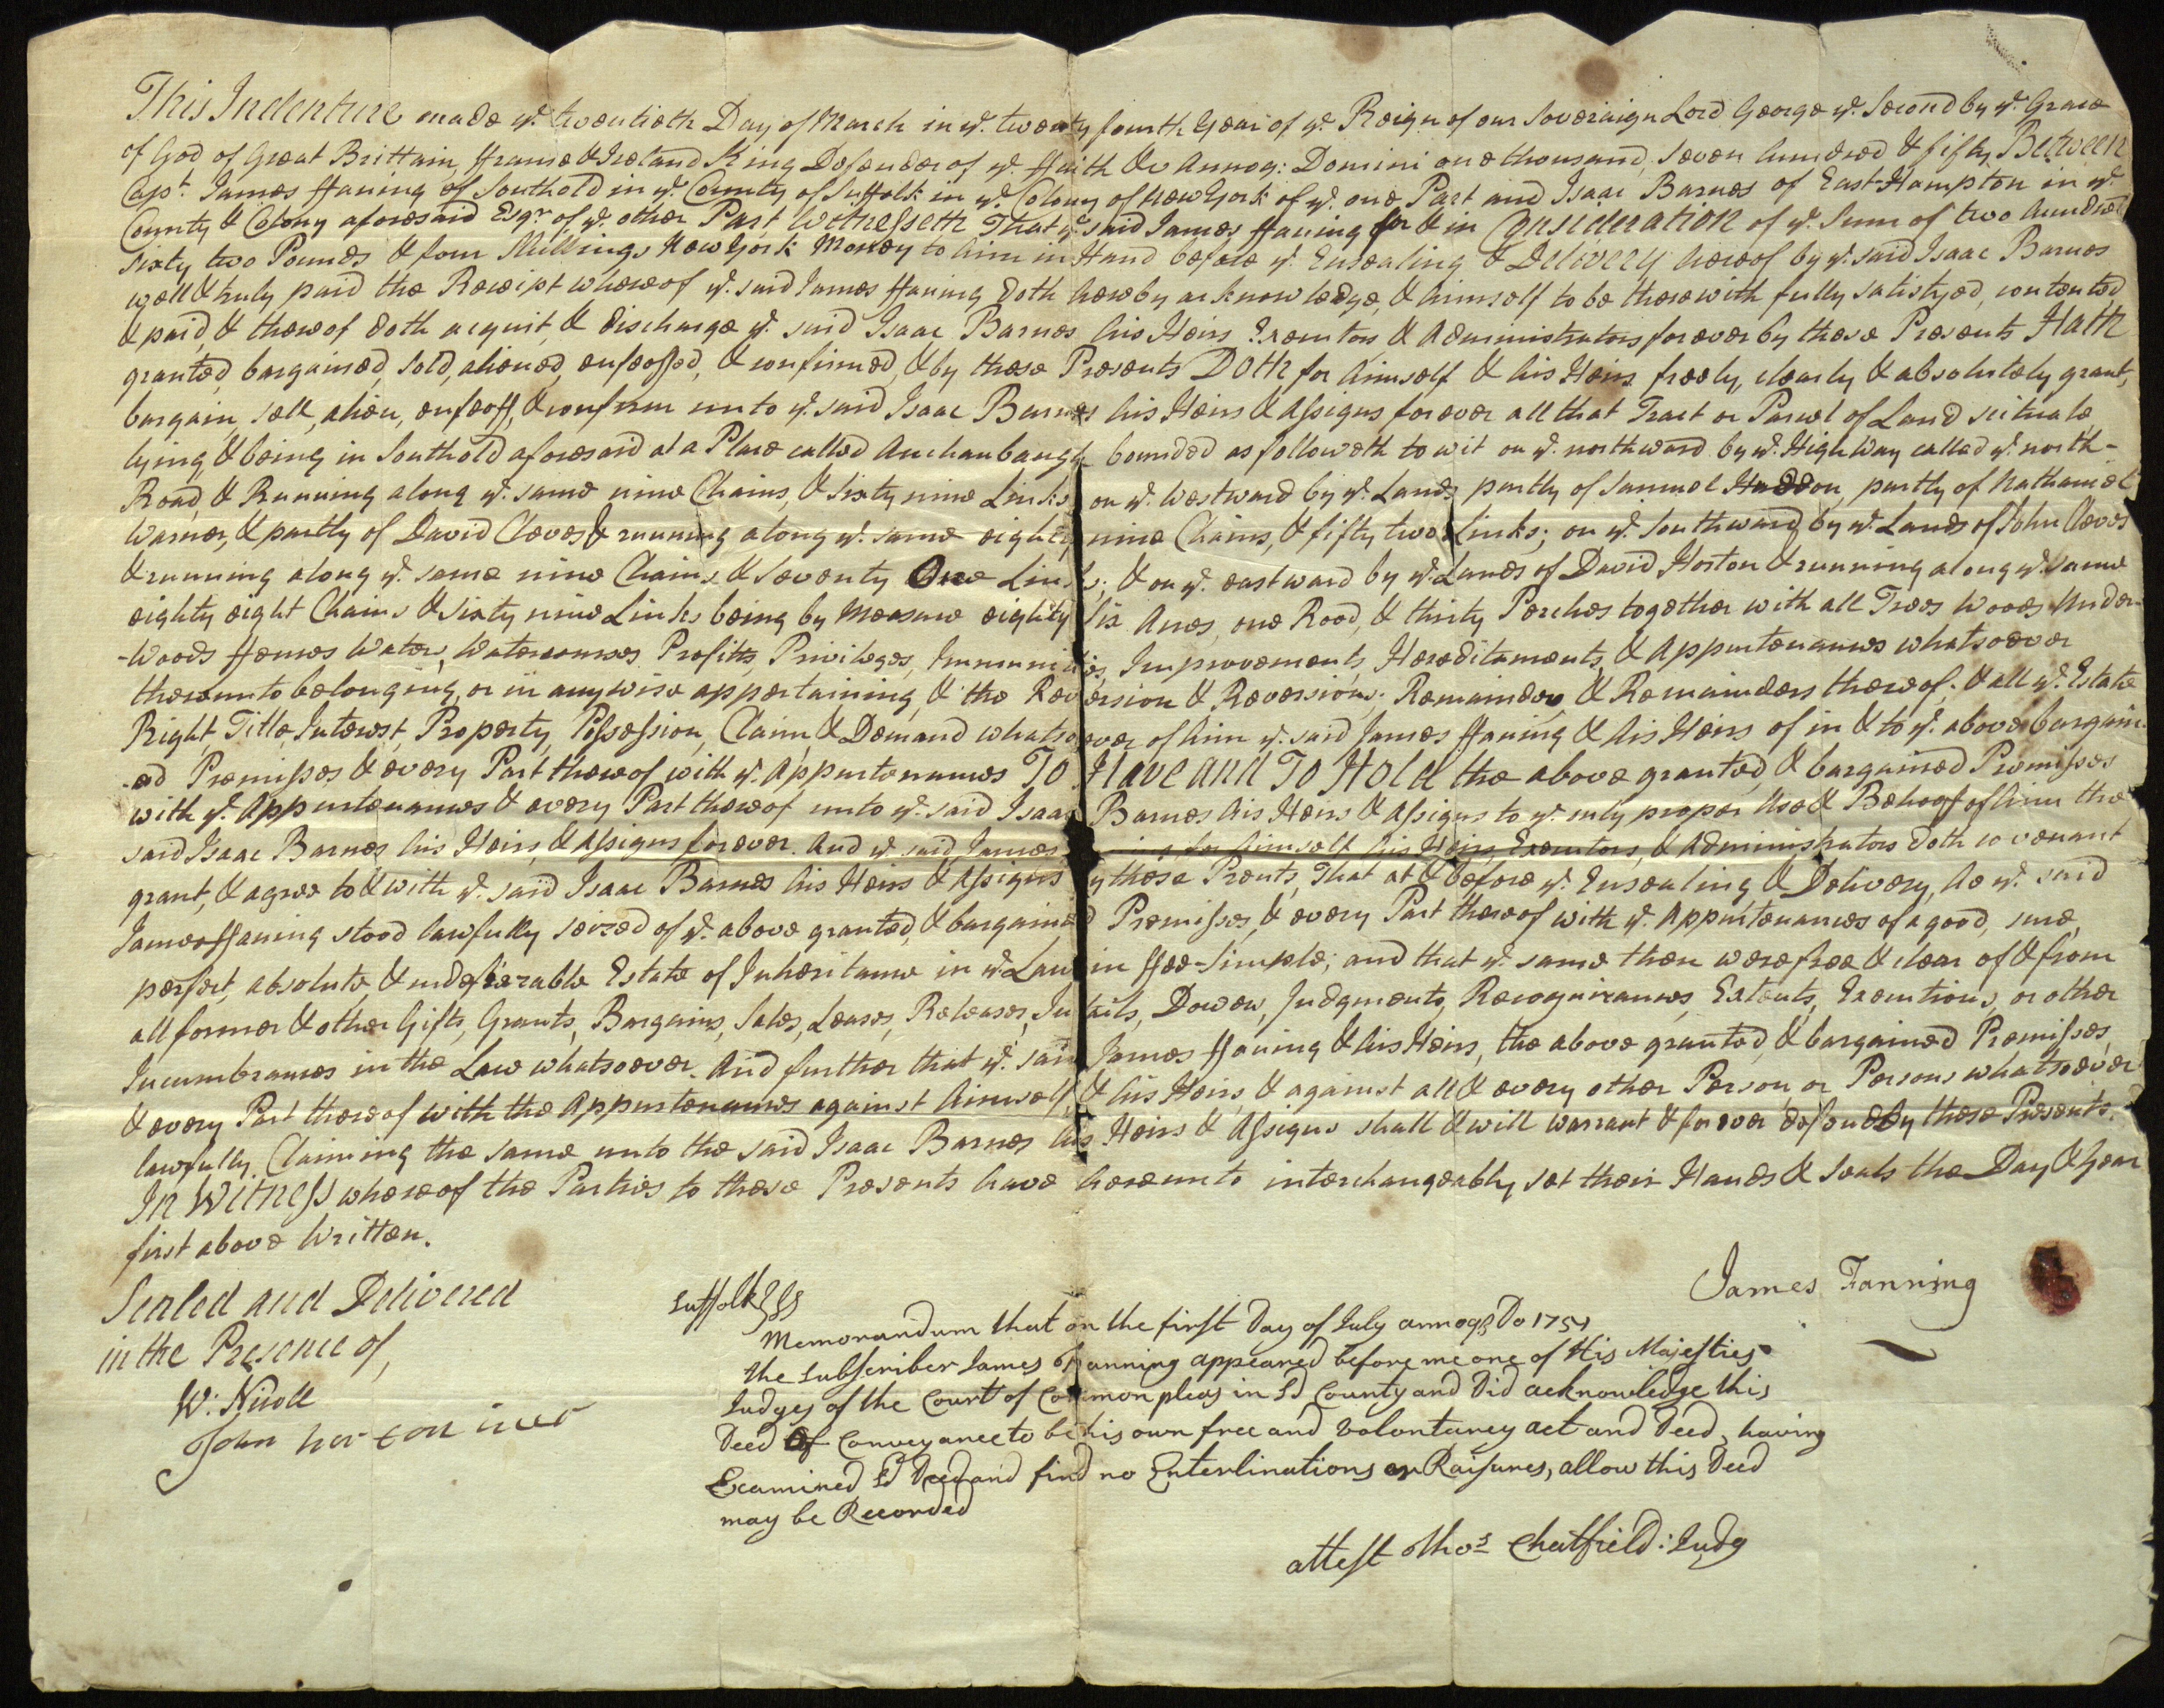 This Indenture made ye. twentieth Day of March in ye. twenty fourth Year of ye. Reign of our Soveraign Lord George ye. Second by ye. Grace
of God of Great Brittain, ffranse & Ireland King Defender of ye. ffaith &c Annoq: Domini one thousand, seven hundred & fifty Between
Capt. James ffaning of Southold in ye. County of Suffolk in ye. Colony of New York of ye. one Part and Isaac Barnes of East-Hampton in ye.
County & Colony aforesaid Esqr. of ye. other Part, Witnesseth That ye. said James ffaning for & in Consideration of ye. Sum of two hundred
sixty two Pounds & four Shillings New York Money to him in Hand before ye. Ensealing & Delivery hereof by ye. said Isaac Barnes
well & truly paid the Receipt whereof ye. said James ffaning doth hereby acknowledge, & himself to be therewith fully satisfyed, contented
& paid, & thereof doth acquit, & discharge ye. said Isaac Barnes his Heirs Executors & Administrators forever by these Presents Hath
granted, bargained, sold, aliened, enfeoffed, & confirmed, & by these Presents Doth for himself & his Heirs freely, clearly & absolutely grant,
bargain, sell, alien, enfeoff, & confirm unto ye. said Isaac Barnes his Heirs & Assigns forever all that Tract or Parcel of Land scituate
lying & being in Southold aforesaid at a Place called bounded as followeth to wit on ye. northward by ye. High Way called ye. north-
Road, & Running along ye. same nine Chains, & sixty nine Links on ye. Westward by ye. Lands partly of Samuel partly of Nathaniel
Warner, & partly of David Cleves & running along ye. same eighty nine Chains, & fifty two Links; on ye. Southward by ye. Lands of John Cleves
& running along ye. same nine Chains & Seventy One Links; & on ye. eastward by ye. Lands of David Horton & running along ye. same
eighty eight Chains & Sixty nine Links being by Measure eighty Six Acres, one Rood, & thirty Perches together with all Trees Woods Under-
-Woods ffences Waters, Watercourses, Profits, Priviledges, Immunities, Improvements, Hereditaments, & Appurtenances whatsoever
thereunto belonging, or in anywise appertaining, & the Reversion & Reversions, Remainder & Remainders thereof; & all ye. Estate
Right, Title, Interest, Property, Possession, Claim, & Demand whatsoever of him ye. said James ffaning & his Heirs of in & to ye. above bargain-
-ed Premisses & every Part thereof with ye. Appurtenances To Have and To Hold the above granted, & bargained Premisses
with ye. Appurtenances & every Part thereof unto ye. said Isaac Barnes his Heirs & Assigns to ye. only proper Use & Behoof of him the
said Isaac Barnes his Heirs, & Assigns forever. And ye. said James for himself his Heirs, Executors, & Administrators doth covenant
grant, & agree to & with ye. said Isaac Barnes his Heirs & Assigns by these Prents, That at & before ye. Ensealing & Delivery, he ye. said
James ffaning stood lawfully seized of ye. above granted, & bargained Premisses, & every Part thereof with ye. Appurtenances of a good, sure,
perfect, absolute, & indefeizable Estate of Inheritance in ye. Law in ffee-Simple; and that ye. same then were free & clear of & from
all former & other Gifts, Grants, Bargains, Sales, Leases, Releases, Intails, Dower, Judgments, Recognizances, Extents, Executions, or other
Incumbrances in the Law whatsoever. And further that ye. said James ffaning & his Heirs, the above granted, & bargained Premisses,
& every Part thereof with the Appurtenances against himself, & his Heirs, & against all & every other Person, or Persons whatsoever
lawfully Claiming the same unto the said Isaac Barnes his Heirs & Assigns shall & will warrant & forever defend by these Presents.
In Witness whereof the Parties to these Presents have hereunto interchangeably set their Hands & Seals the Day & Year
first above Written.
Sealed and Delivered
in the Presence of,
W: Nicoll
John
James Fanning
Suffolk } ss
Memorandum that on the first Day of July annoq Do 1751
the Subscriber James ffanning appeared before me one of His Majesties
Judges of the Court of Common pleas in sd County and Did acknowledge this
Deed Of Conveyance to be his own free and Voluntarey act and Deed, having
Examined sd Deed and find no Enterlinations or Raisures, allow this Deed
may be Recorded
attest Thos Chatfield: Judg